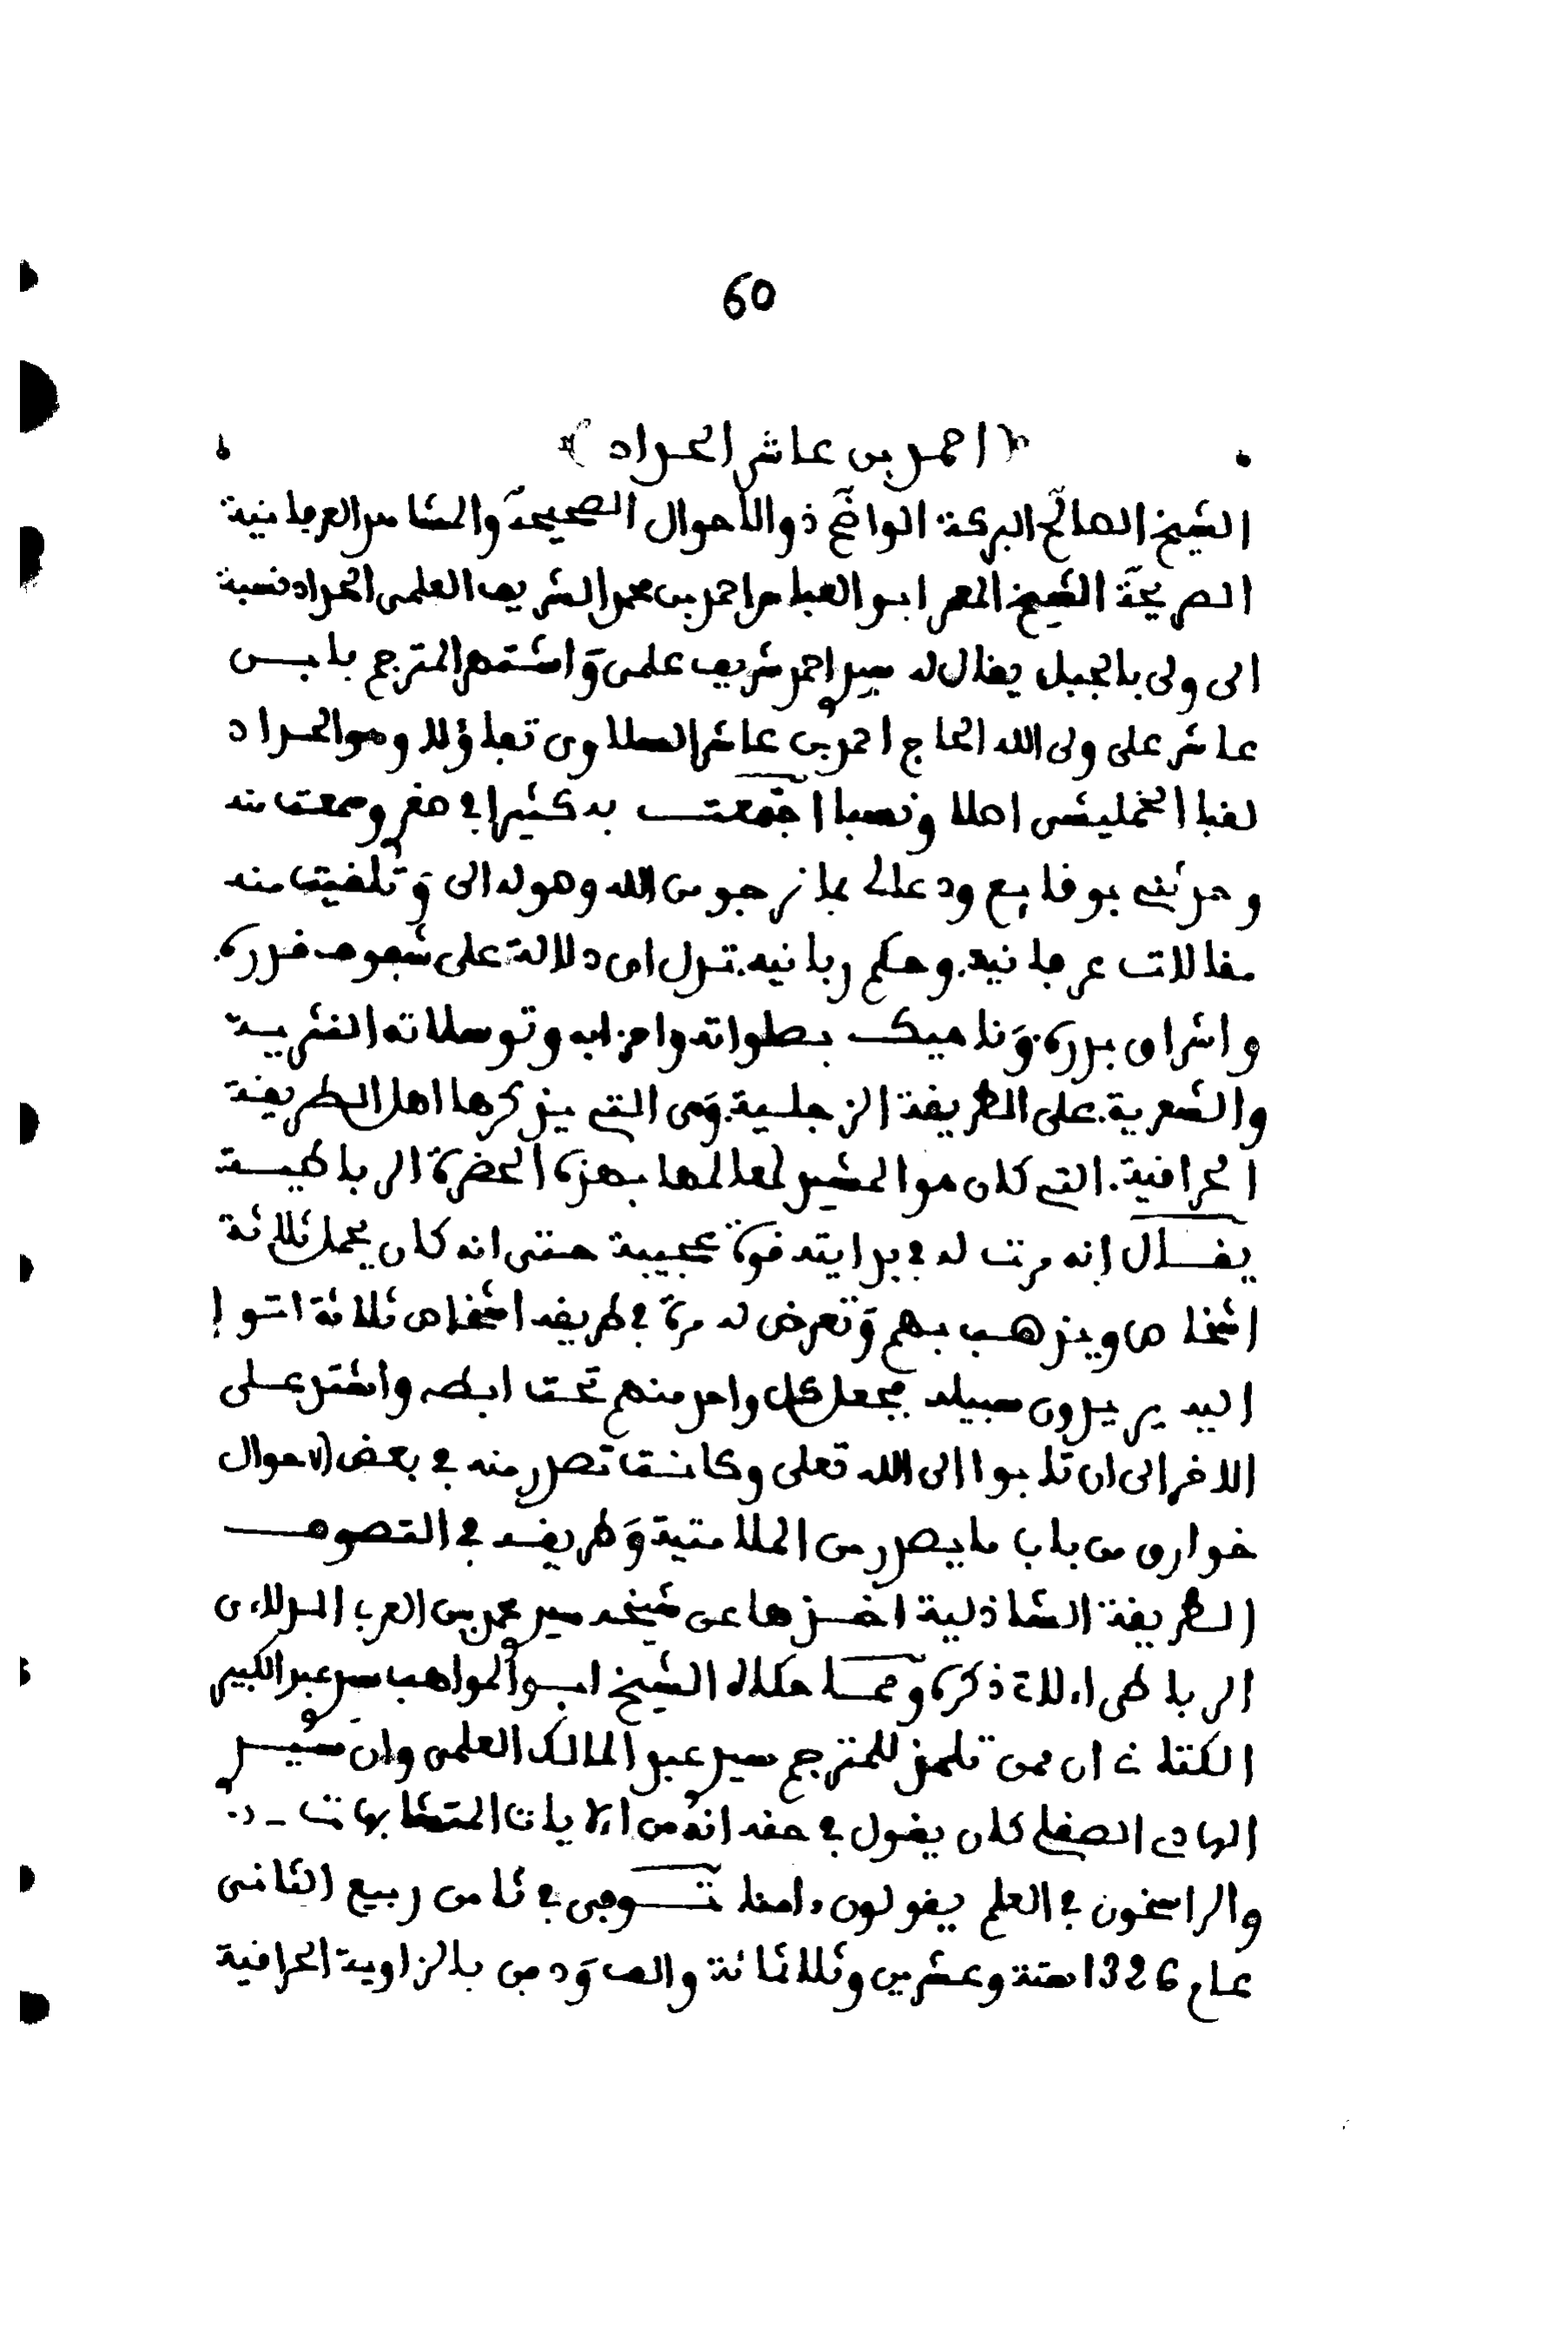 60
﴿ احمد بن عاشر الحداد ﴾
الشيخ الصالح البركة الواضح ذو الاحوال الصحيحة والمشاهد العرفانية
الصريحة الشيخ المعمر ابو العباس احمد بن محمد الشريف العلمي الحداد نسبة
الى ولي بالجبل يقال له سيدي احمد شريف علمي وَاشتهر المترجم بابن
عاشر على ولي الله الحاج احمد بن عاشر السلاوي تفاؤلا وهو الحداد
لقبا الخمليشي اصلا ونسبا اجتمعت به كثيرا في صغري وسمعت منه
وحدثني بوقايع ودعا لي بما نرجو من الله وصوله الي وَتلقيت منه
مقالات عرفانية. وحكم ربانية. تدل اي دلالة على شفوف قدره.
واشراق بدره. وَناهيك بصلواته واحزابه وتوسلاته النثرية
والشعرية. على الطريقة الزجلية. وَهي التي يذكرها اهل الطريقة
الحراقية. التي كان هو المشيد لمعالمها بهذه الحضرة الرباطية
يقال انه مرت له في بدايته قوة عجيبة حتى انه كان يحمل ثلاثة
اشخاص ويذهب بهم وَتعرض له مرة في طريقه اشخاص ثلاثة اتوا
اليه يريدون سبيله فجعل كل واحد منهم تحت ابطه واشتد على
الاخر الى ان تابوا الى الله تعلى وكانت تصدر منه في بعض الاحوال
خوارق من باب ما يصدر من الملامتية وَطريقه في التصوف
الطريقة الشاذلية اخذها عن شيخه سيدي محمد بن العربي الدلاءي
الرباطي الاتي ذكره ومما حكاه الشيخ ابو المواهب سيدي عبد الكبير
الكتاني ان ممن تلمذ للمترجم سيدي عبد المالك العلمي وان سيدي
الهادي الصقلي كان يقول في حقه انه من الايات المتشابهات -
والراسخون في العلم يقولون ءامنا توفي في ثامن ربيع الثاني
عام 1326 ستة وعشرين وثلاثمائة والف وَدفن بالزاوية الحراقية